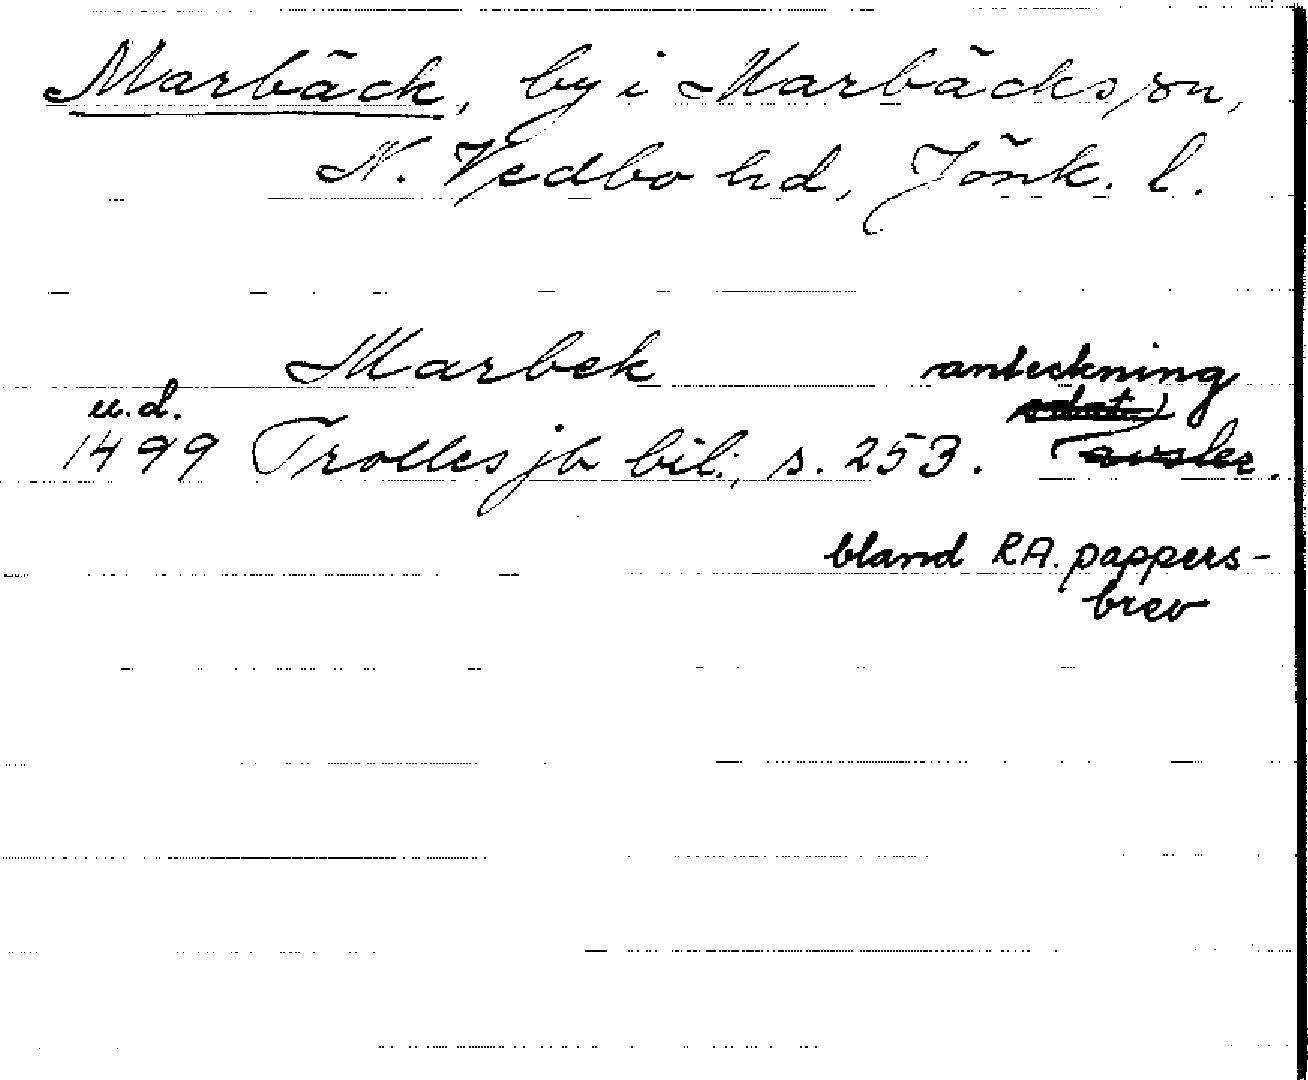 Marbäck, by i Marbäcks sn,
N. Vedbo hd, Jönk. l.
Marbek anteckning
u.d.
1499 Trolles jb bil., s. 253.
bland RA. pappers-
brev